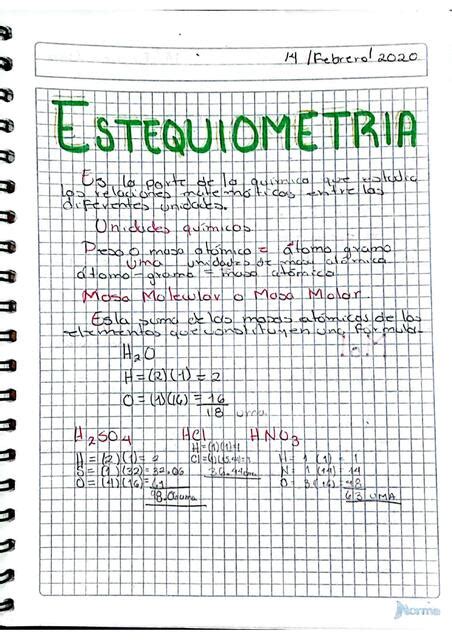 14 / Febrero / 2020
ESTEQUIOMETRIA
Es la parte de la química que estudia
las relaciones matemáticas entre las
diferentes unidades.
Unidades químicas
Peso o masa atómica = átomo gramo
uma unidades de masa atómica
átomo-gramo = masa atómica
Masa Molecular o Masa Molar.
Es la suma de las masas atómicas de los
elementos que constituyen una formula.
H₂O
H = (2)(1) = 2
O = (1)(16) = 16
18 uma
H₂SO₄ HCl HNO₃
H = (2)(1) = 2
S = (1)(32) = 32.06
O = (4)(16) = 61
98.06uma
H = (1)(1) = 1
H = 1 (1) = 1
N = 1 (14) = 14
O = 3 (16) = 48
63 UMA
Norma